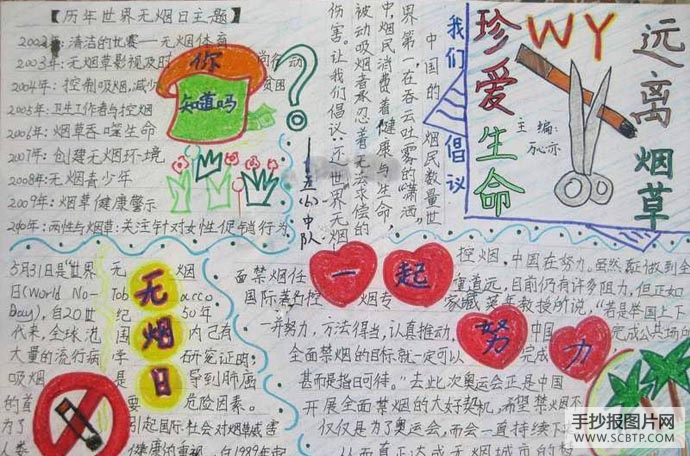 【历年世界无烟日主题】
2002年:清洁的比赛——无烟体育
2003年:无烟草影视及时尚行动
2004年:控制吸烟,减少贫困
2005年:卫生工作者与控烟
2006年:烟草吞噬生命
2007年:创建无烟环境
2008年:无烟青少年
2009年:烟草健康警示
2010年:两性与烟草:关注针对女性促销行为
你
知道吗
?
我们倡议
中国的烟民数量世
界第一,在吞云吐雾的“潇洒”
中,烟民消费着健康与生命,
被动吸烟者承忍着无法求偿的
伤害。让我们倡议:不
世界无烟
中队
珍爱生命
WY
远离烟草
主编:
5月31日是“世界无烟
日(World No-Tobacco
Day),自20世纪50年
代来,全球范围内已有
大量的流行病学研究证明:
吸烟是导到肺癌
的首要危险因素。
为了引起国际社会对烟草威害
人类健康的重视,
自1989年起
无烟日
一起努力
控烟,中国在努力。虽然
做到全
面禁烟任重道远,目前仍有许多阻力,但正如
国际
控烟专家
教授所说,“若是举国上下
一齐努力,方法得当,认真推动,中国
完成公共场所
全面禁烟的目标就一定可以完成
甚而是指日可待。”去此次奥运会正是中国
开展全面禁烟的大好契机,希望禁烟不
仅仅是为了奥运会,而会一直持续下
从而真正达成无烟城市的
手抄报图片网
WWW.SCBTP.COM